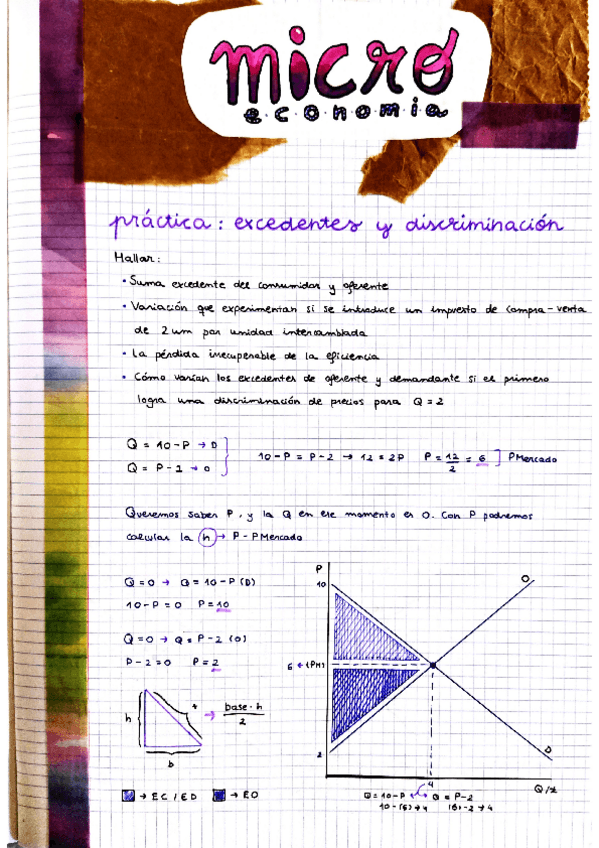 micro
economia
práctica: excedentes y discriminación
Hallar:
• Suma excedente del consumidor y oferente
• Variación que experimentan si se introduce un impuesto de compra-venta
de 2 um por unidad intercambiada
• La pérdida irrecuperable de la eficiencia
• Cómo varían los excedentes de oferente y demandante si es primero
logra una discriminación de precios para Q = 2
Q = 10 - P → D
Q = P - 2 → O
10 - P = P - 2 → 12 = 2P P = 12/2 = 6 ] PMercado
Queremos saber P, y la Q en ese momento es 0. Con P podremos
calcular la h → P - PMercado
Q = 0 → Q = 10 - P (D)
10 - P = 0 P = 10
Q = 0 → Q = P - 2 (O)
P - 2 = 0 P = 2
h
b
* → base · h / 2
→ EC / ED → EO
P
10
6 ← (PM)
2
O
D
4
Q/t
Q = 10 - P ← → Q = P - 2
10 - (6) → 4 (6) - 2 → 4